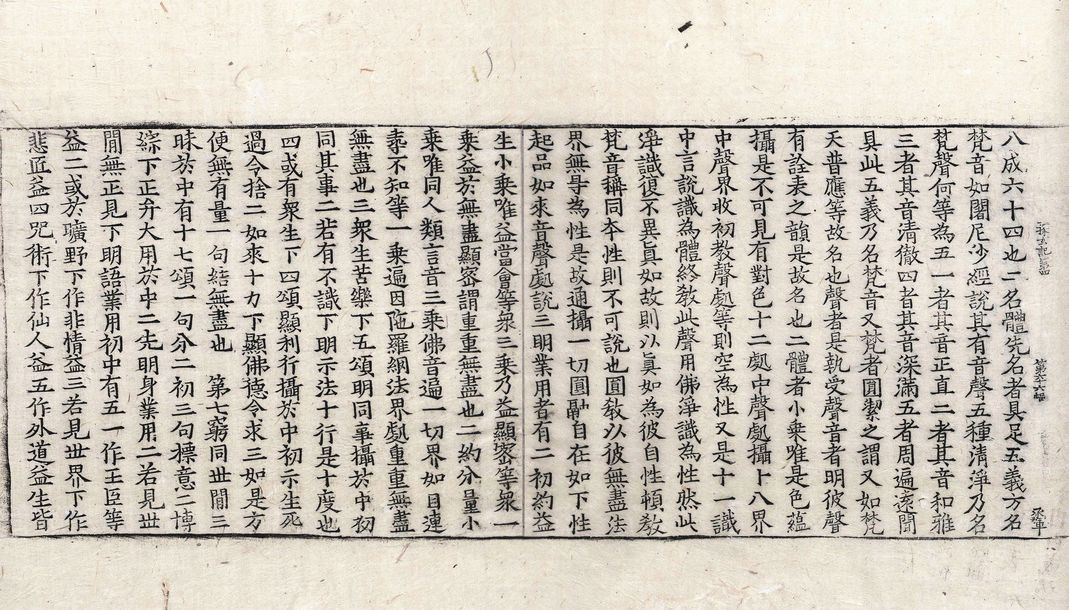 八成六十四也二名體先名者具足五義方名
梵音如闍尼沙經說其有音聲五種清淨乃名
梵聲何等為五一者其音正直二者其音和雅
三者其音清徹四者其音深滿五者周遍遠聞
具此五義乃名梵音又梵者圓潔之謂又如梵
天普應等故名也聲者是執受聲音者明彼聲
有詮表之韻是故名也二體者小乗唯是色蘊
攝是不可見有對色十二處中聲處攝十八界
中聲界收初教聲處等則空為性又是十一識
中言說識為體終教此聲用佛淨識為性然此
淨識復不異真如故則以真如為彼自性頓教
梵音稱同本性則不可說也圓教以彼無盡法
界無㝵為性是故通攝一切圓融自在如下性
起品如來音聲處說三明業用者有二初約益
生小乗唯益當會等衆三乗乃益顯密等衆一
乗益於無盡顯密謂重重無盡也二約分量小
乗唯同人類言音三乗佛音遍一切界如目連
尋不知等一乗遍因陁羅網法界處重重無盡
無盡也三衆生苦樂下五頌明同事攝於中初
同其事二若有不識下明示法十行是十度也
四或有衆生下四頌顯利行攝於中初示生死
過令捨二如來十力下顯佛德令求三如是方
便無有量一句結無盡也 第七窮同世間三
昧於中有十七頌一句分二初三句標意二博
綜下正弁大用於中二先明身業用二若見世
間無正見下明語業用初中有五一作王臣等
益二或於曠野下作非情益三若見世界下作
悲匠益四呪術下作仙人益五作外道益生皆
探玄記第四